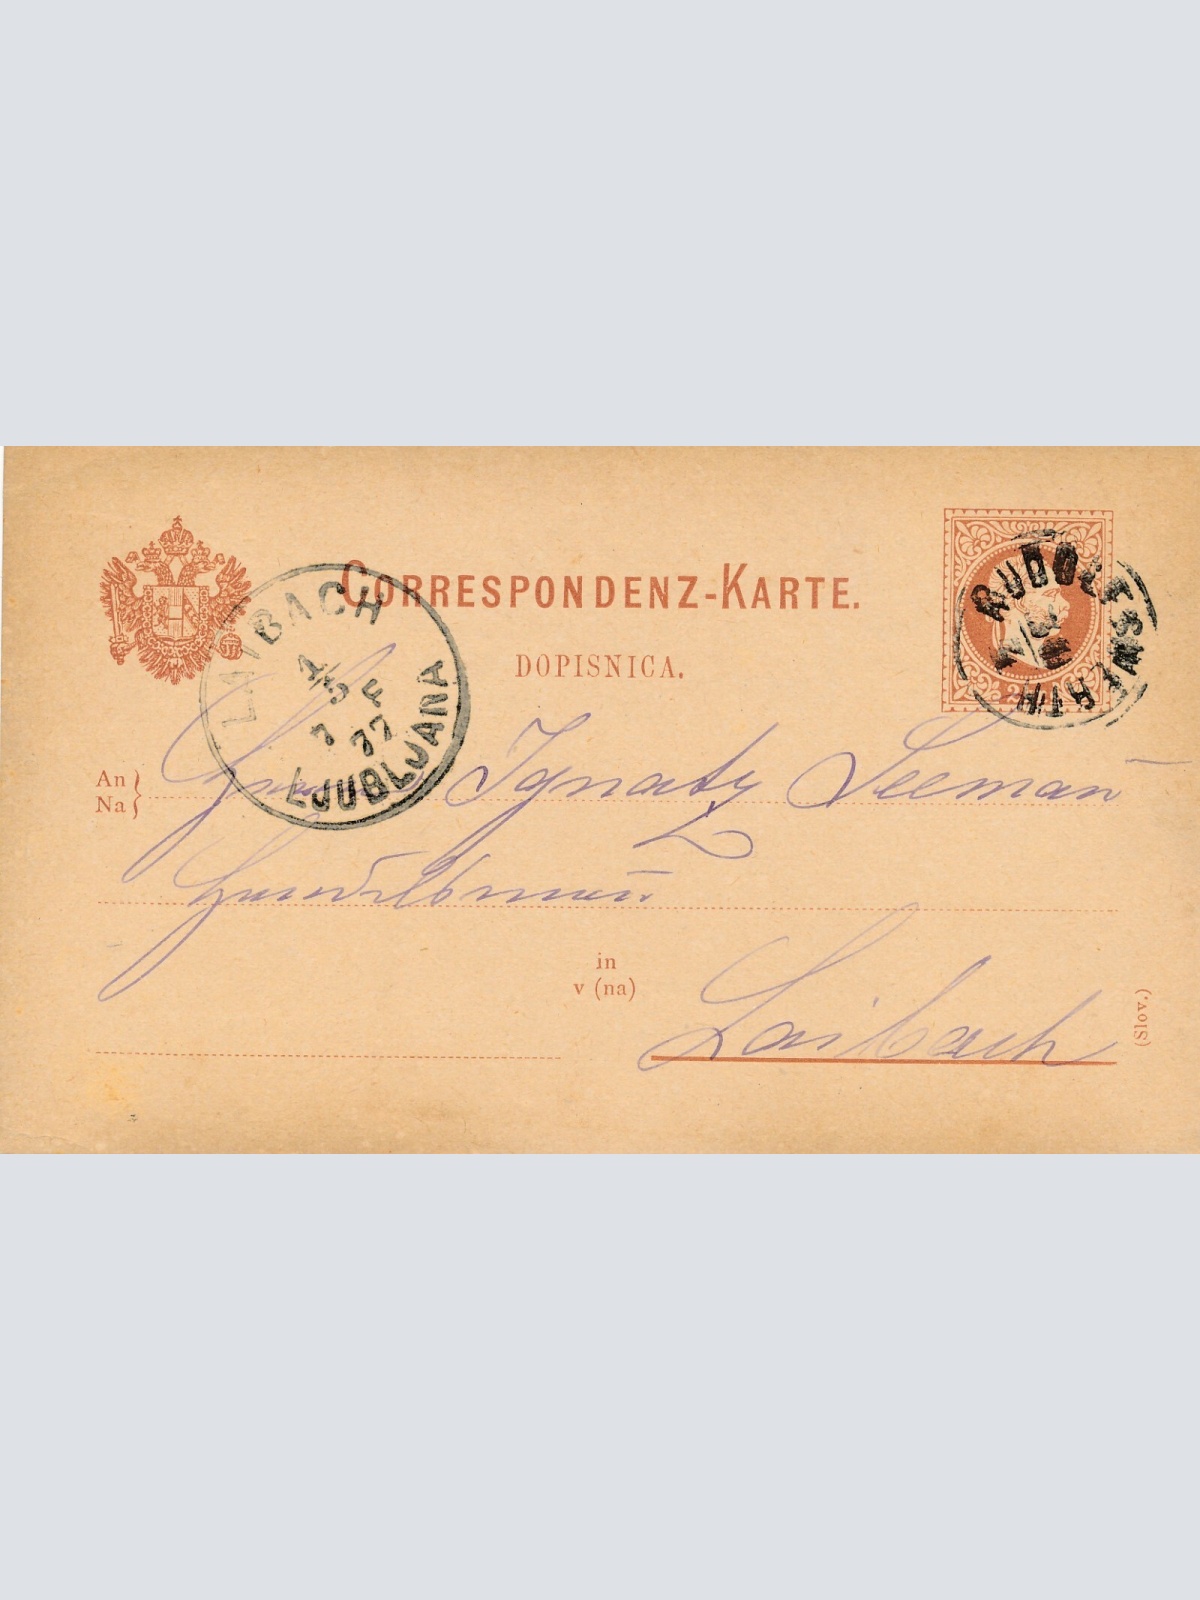 CORRESPONDENZ-KARTE.
DOPISNICA.
LAIBACH
1/5
7 F
77
LJUBLJANA
RUDOLFSWERTH
An
Na
Ignatz Seeman
in
v (na)
Laibach
(Slov.)